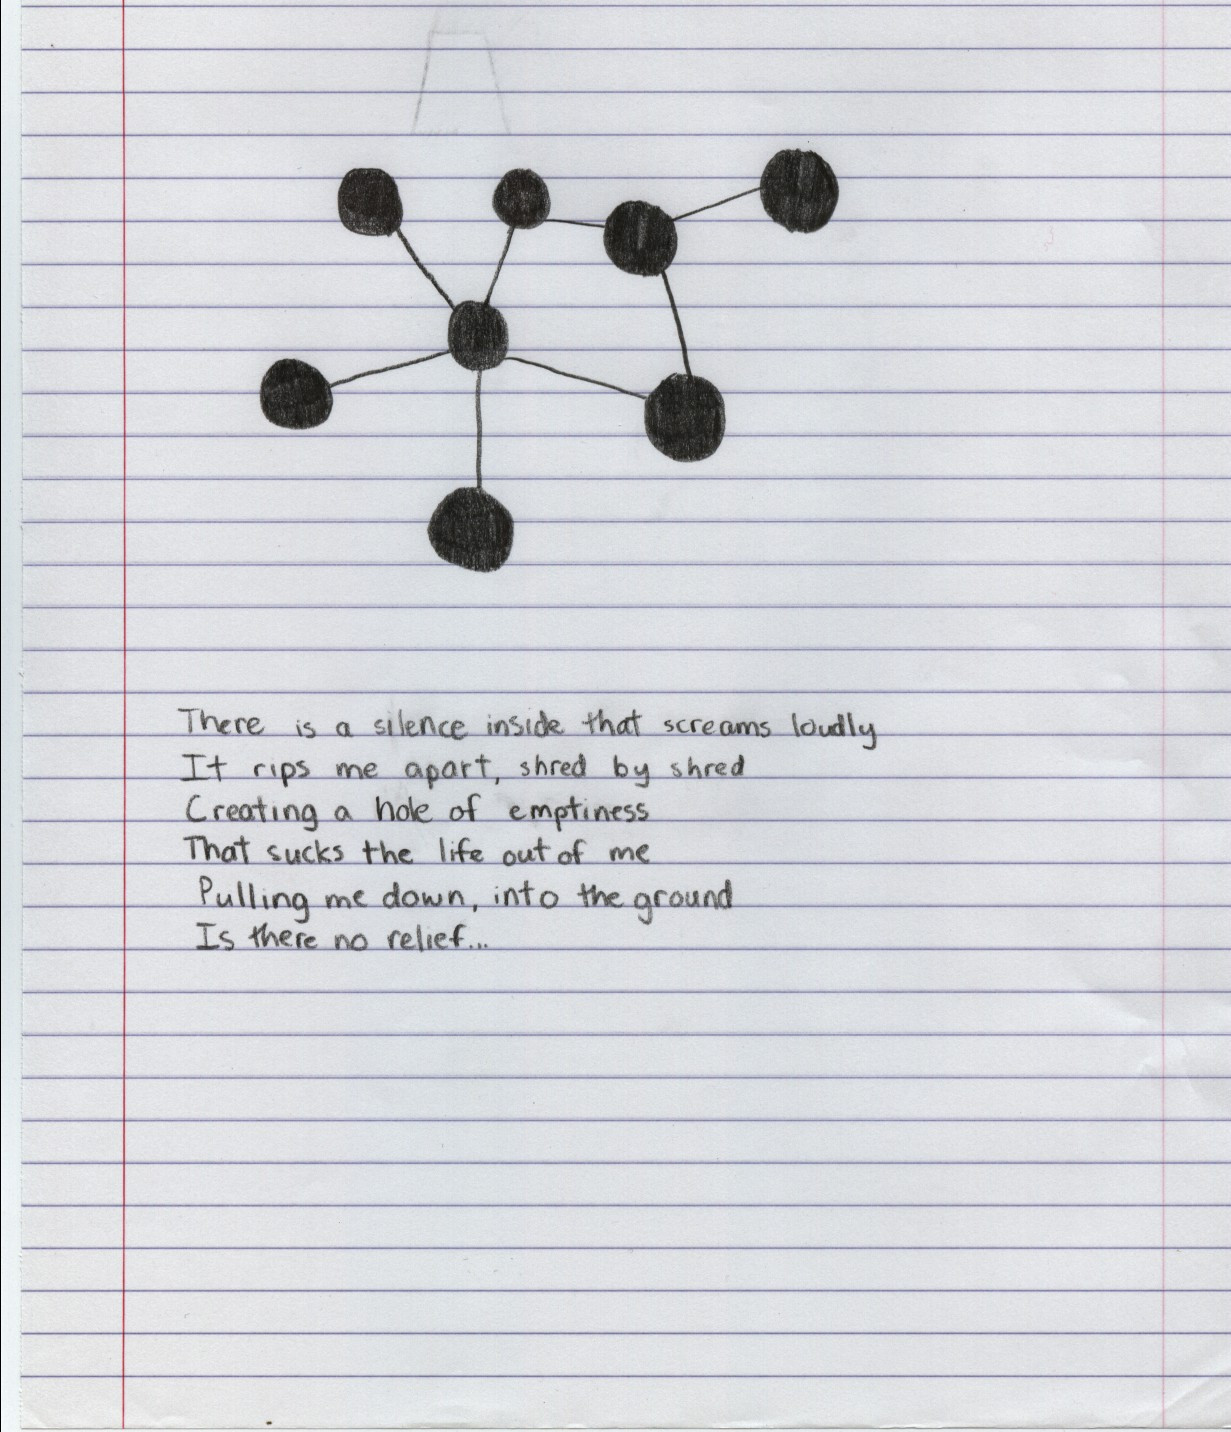 There is a silence inside that screams loudly
It rips me apart, shred by shred
Creating a hole of emptiness
That sucks the life out of me
Pulling me down, into the ground
Is there no relief...